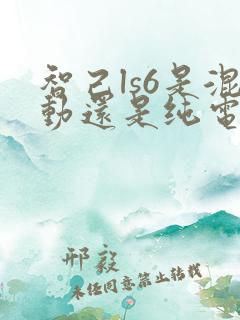 智己ls6是混
動還是纯電
邢毅
未任同意禁止转载